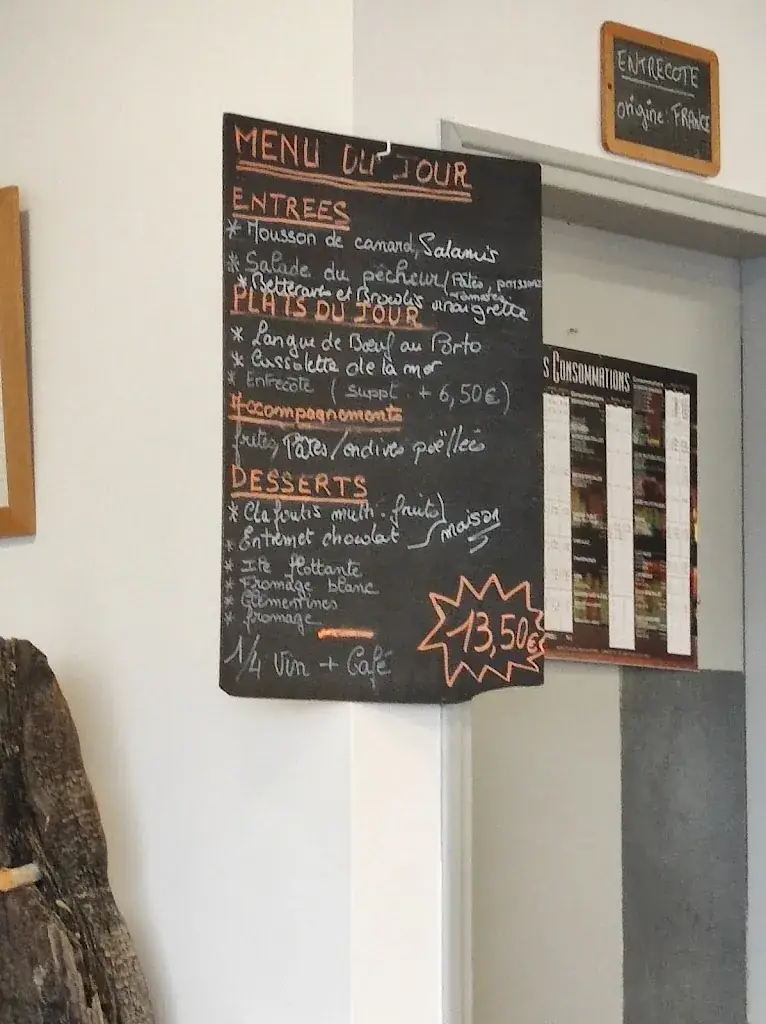 ENTRECOTE
origine: FRANCE
MENU DU JOUR
ENTREES
* Mousson de canard, Salamis
* Salade du pêcheur (Pâtes, poissons
tomates)
* Betteraves et Brocolis vinaigrette
PLATS DU JOUR
* Langue de Bœuf au Porto
* Cassolette de la mer
* Entrecote (suppl. + 6,50€)
Accompagnements
frites, Pâtes/endives poëllées
DESSERTS
* Clafoutis multi-fruits
* Entremet chocolat
maison
* Ile flottante
* Fromage blanc
* Clémentines
* fromage
1/4 Vin + Café
13,50€
S CONSOMMATIONS